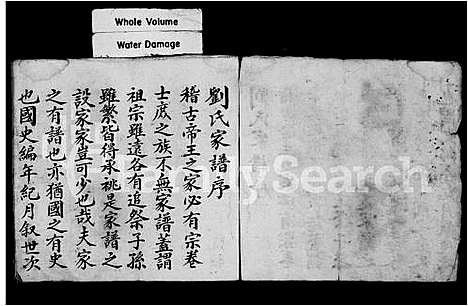 Whole Volume
Water Damage
劉氏家譜序
稽古帝王之家必有宗卷
士庶之族不無家譜蓋謂
祖宗雖遠各有追祭子孫
雖繁皆得承祧是家譜之
設家家豈可少也哉夫家
之有譜也亦猶國之有史
也國史編年紀月叙世次
FamilySearch